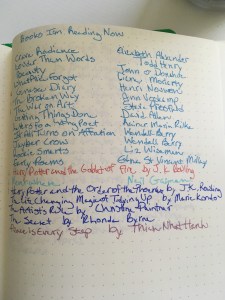 Books I'm Reading Now
Crave Radiance Elizabeth Alexander
Louder Than Words Todd Henry
Beauty John O'Donohue
What Alice Forgot Liane Moriarty
Genesee Diary Henri Nouwen
The Broken Way Ann Voskamp
The War on Art Steve Pressfield
Getting Things Done David Allen
Letters to a Young Poet Rainer Maria Rilke
It All Turns on Affection Wendell Berry
Jayber Crow Wendell Berry
Rookie Smarts Liz Wiseman
Early Poems Edna St. Vincent Millay
Harry Potter and the Goblet of Fire, by J.K. Rowling
Neil Gaiman
Harry Potter and the Order of the Phoenix by J.K. Rowling
The Life Changing Magic of Tidying Up by Marie Kondo
The Artist's Rule by Christine Paintner
The Secret by Rhonda Byrne
Peace is Every Step by Thich Nhat Hanh